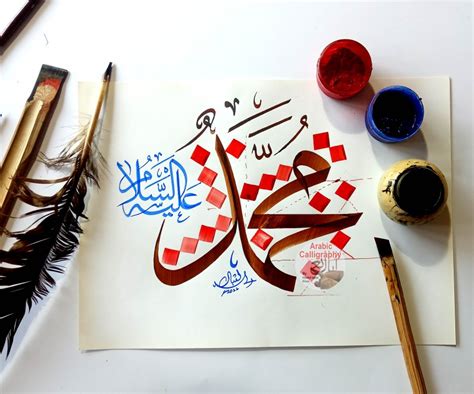 محمد
عليه السلام
Arabic
Calligraphy